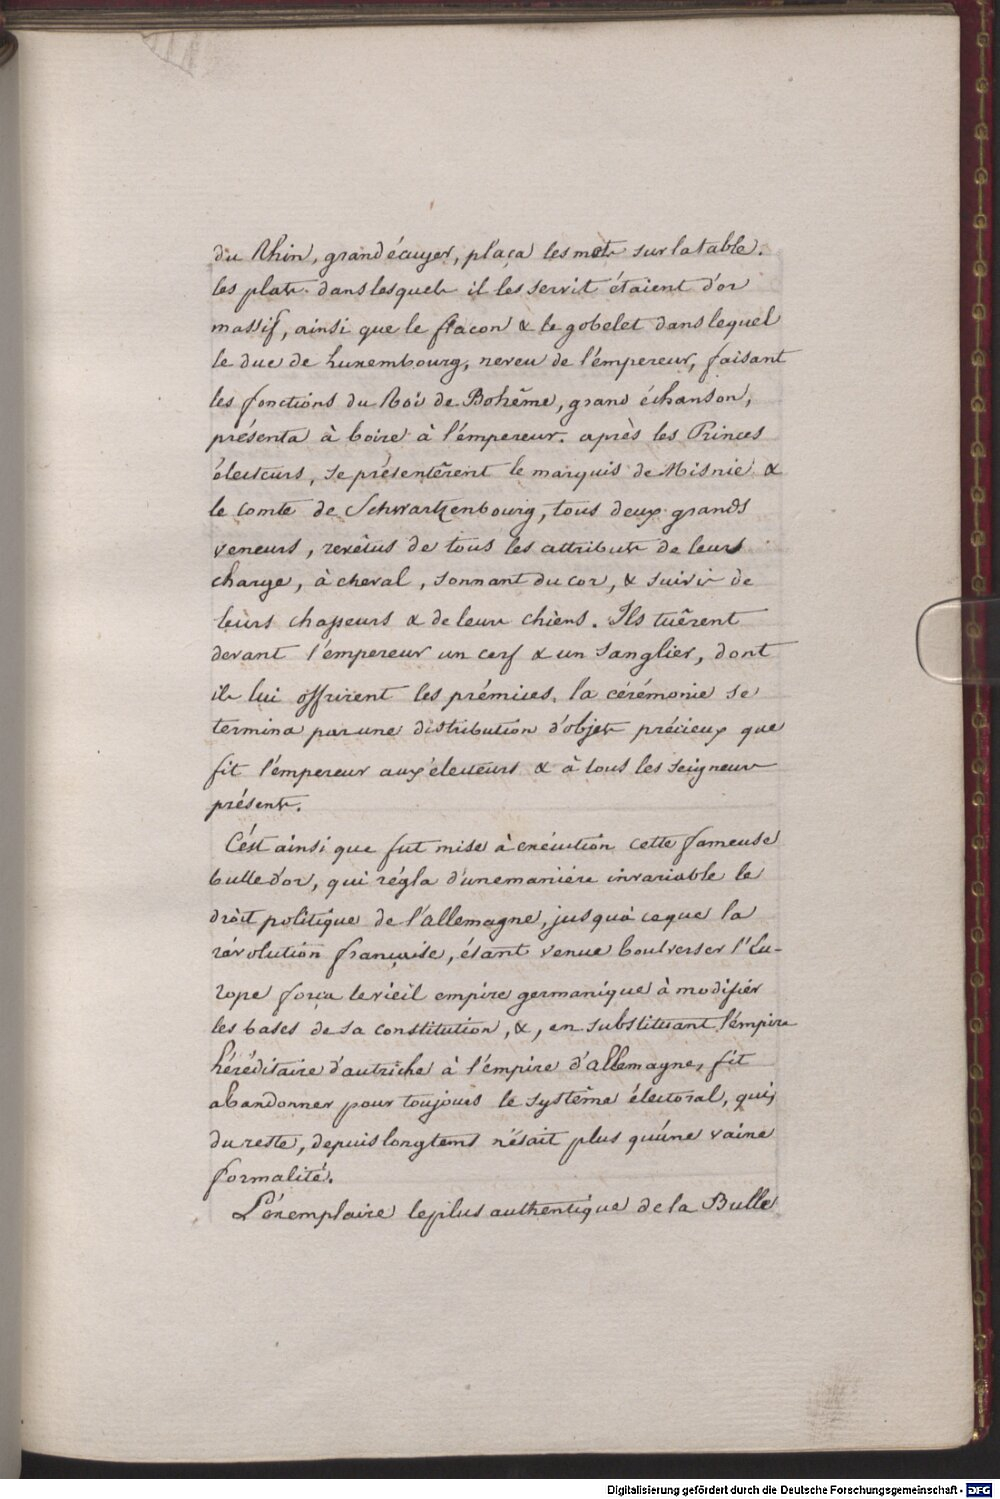 du Rhin, grand écuyer, plaça les mets sur la table.
les plats dans lesquels il les servit étaient d'or
massif, ainsi que le flacon & le gobelet dans lequel
le duc de Luxembourg, neveu de l'émpereur, faisant
les fonctions du Roi de Bohême, grand échanson,
présenta à boire à l'émpereur. après les Princes
électeurs, se présentêrent le marquis de Misnie &
le comte de Schwartzenbourg, tous deux grands
veneurs, revêtus de tous les attributs de leurs
charge, à cheval, sonnant du cor, & suivis de
leurs chasseurs & de leurs chiens. Ils tuêrent
devant l'empereur un cerf & un sanglier, dont
ils lui offrirent les prémices. la cérémonie se
termina par une distribution d'objets précieux que
fit l'empereur aux électeurs & à tous les seigneurs
présents.
C'ést ainsi que fut mise à exécution cette fameuse
bulle d'or, qui régla d'une maniére invariable le
droit politique de l'allemagne, jusqu'à ce que la
révolution française, étant venue boulverser l'Eu-
rope força le vieil empire germanique à modifier
les bases de sa constitution, &, en substituant l'émpire
héréditaire d'autriche à l'émpire d'allemagne, fit
abandonner pour toujours le systême électoral, qui,
du reste, depuis longtems n'était plus qu'une vaine
formalité.
L'éxemplaire le plus authentique de la Bulle
Digitalisierung gefördert durch die Deutsche Forschungsgemeinschaft - DFG